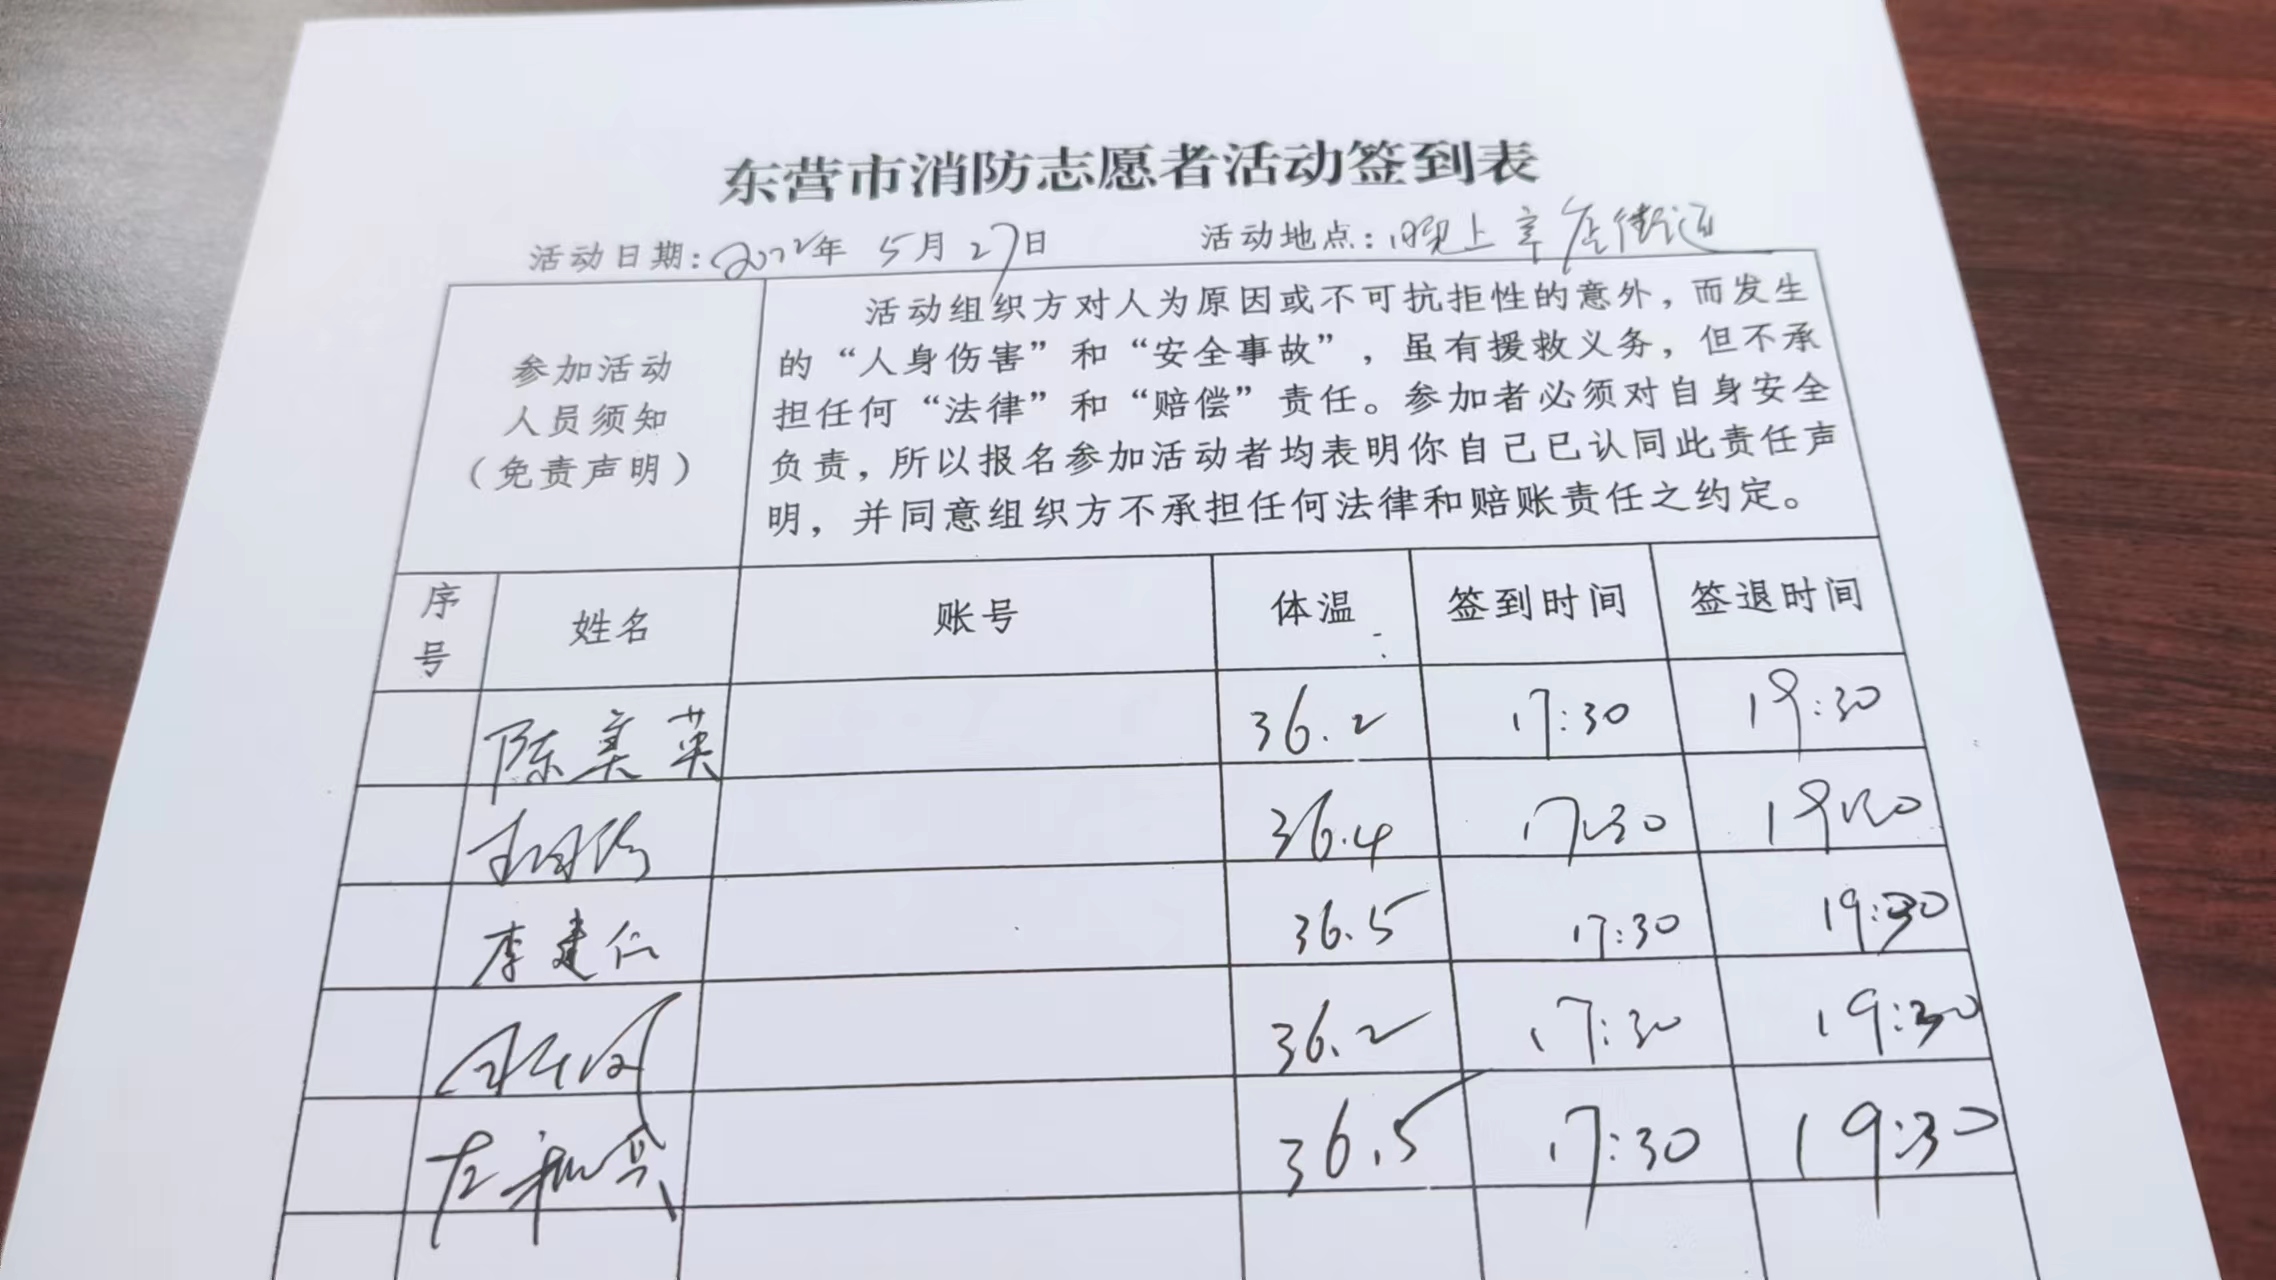 东营市消防志愿者活动签到表
活动日期:2022年 5月27日 活动地点:晚上辛店街道
参加活动
人员须知
（免责声明）
活动组织方对人为原因或不可抗拒性的意外，而发生
的“人身伤害”和“安全事故”，虽有援救义务，但不承
担任何“法律”和“赔偿”责任。参加者必须对自身安全
负责，所以报名参加活动者均表明你自己已认同此责任声
明，并同意组织方不承担任何法律和赔账责任之约定。
序号 姓名 账号 体温 签到时间 签退时间
陈美英 36.2 17:30 19:30
36.4 17:30 19:30
李建仁 36.5 17:30 19:30
36.2 17:30 19:30
36.5 17:30 19:30